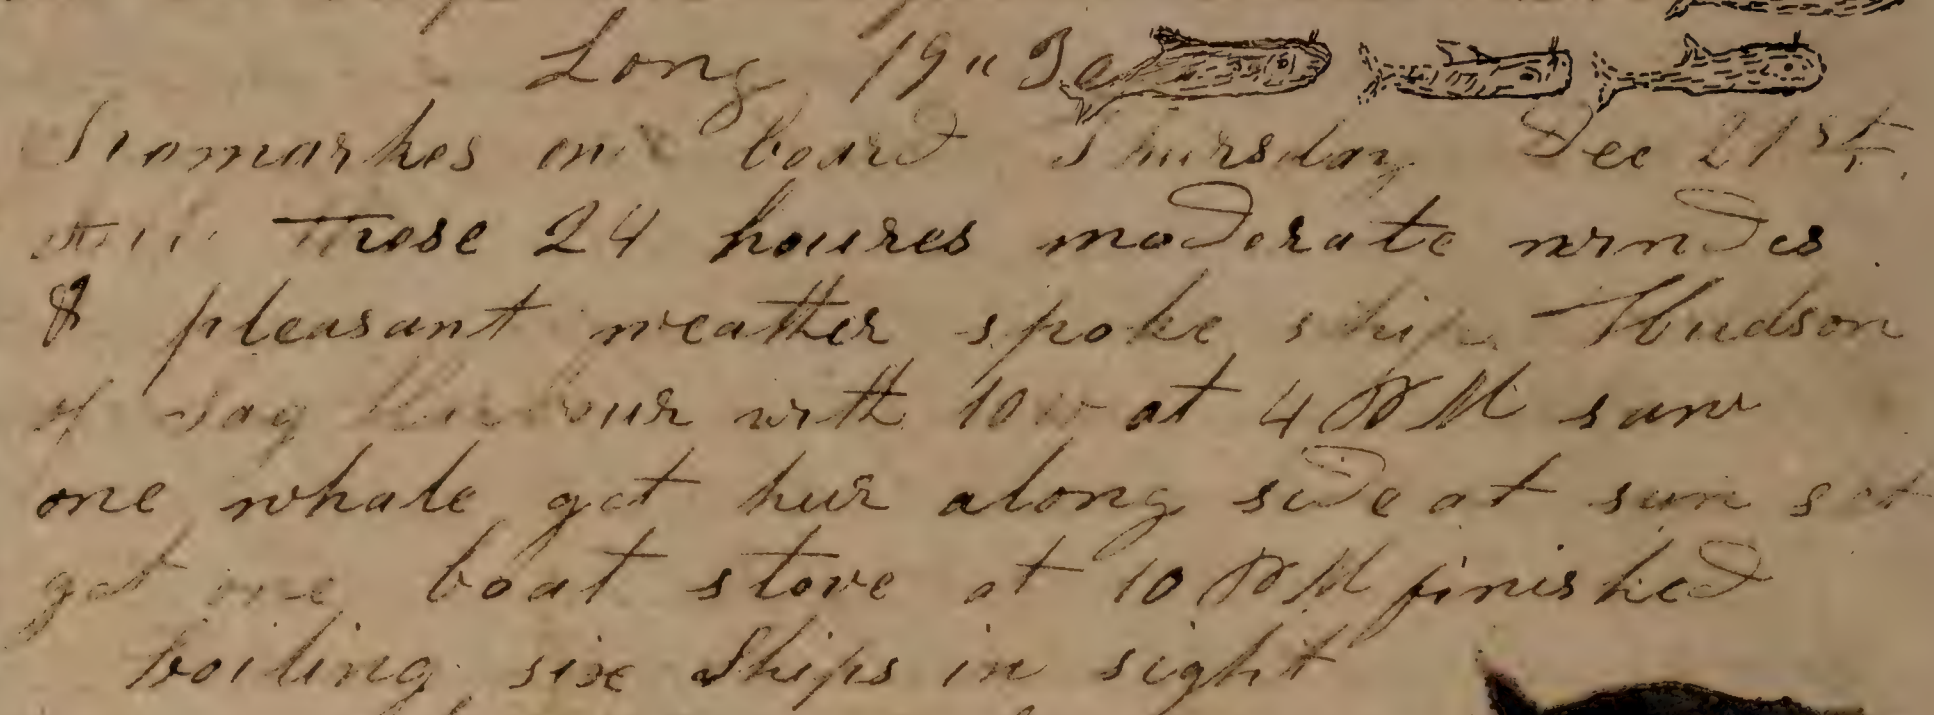 Long 19 " 30
Remarkes on board Thursday Dec 21st
These 24 houres moderate windes
& pleasant weather spoke ship Hudson
of Sag Harbour with 100 at 4 PM saw
one whale got hur along side at sun set
got one boat stove at 10 PM finished
boiling six Ships in sight